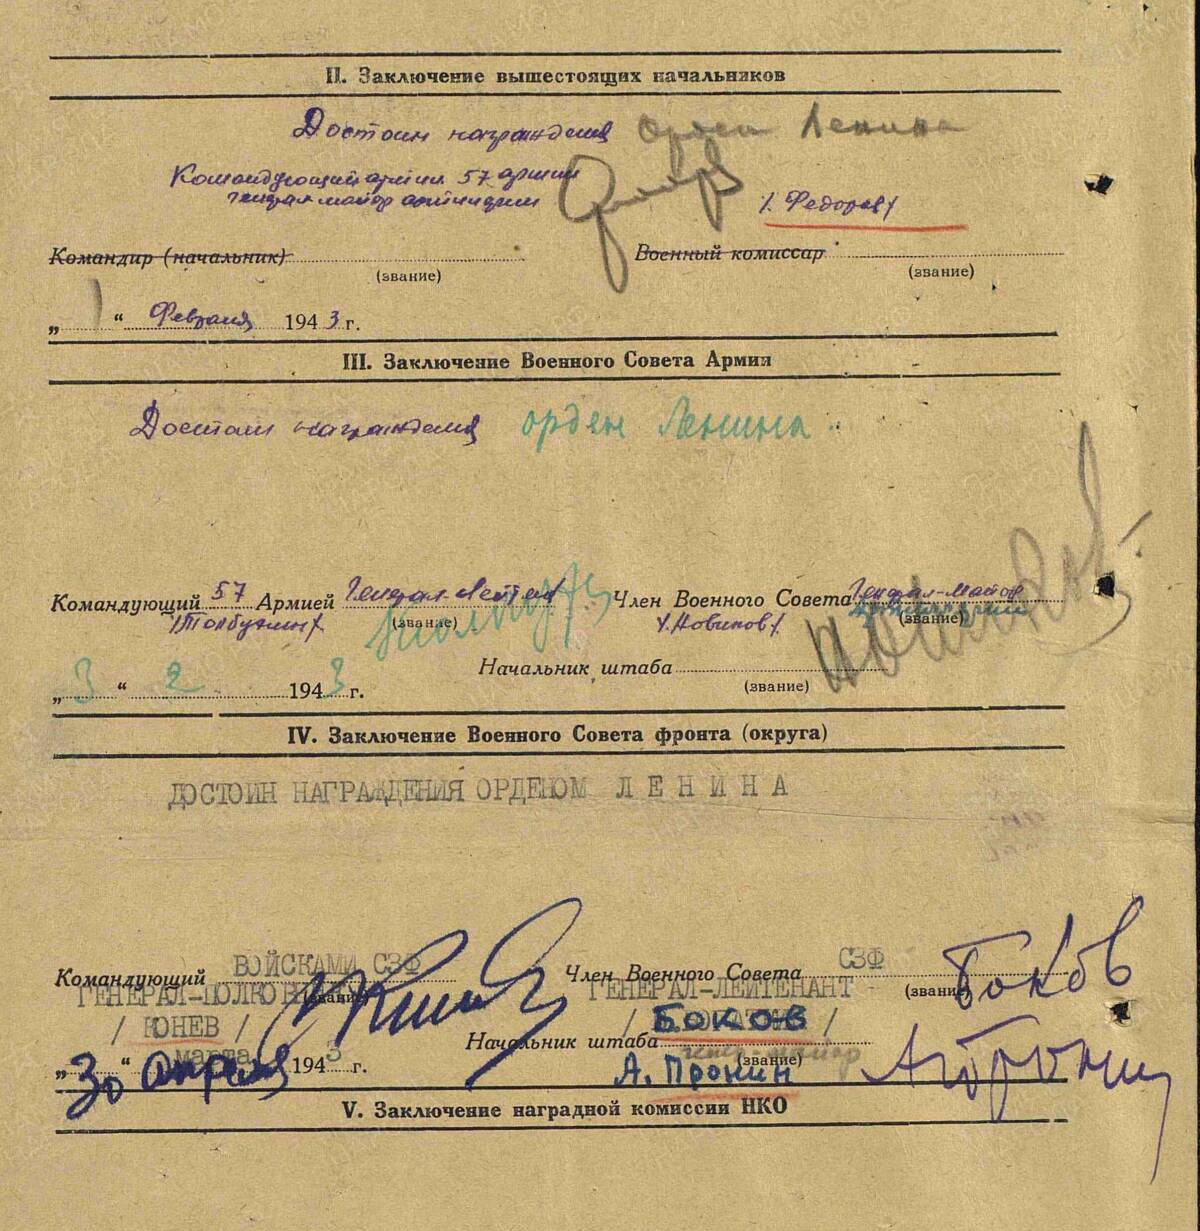 II. Заключение вышестоящих начальников
Достоин награждения Орден Ленина
Командующий арт. 57 армии
генерал майор артиллерии /. Федоров/
Командир (начальник) Военный комиссар
(звание) (звание)
„1“ Февраля 1943 г.
III. Заключение Военного Совета Армии
Достоин награждения орден Ленина
Командующий 57 Армией Генерал-Лейтен Член Военного Совета Генерал-майор
/Толбухин/ (звание) /.Новиков/. (звание)
Начальник штаба
„3“ 2 1943 г. (звание)
IV. Заключение Военного Совета фронта (округа)
ДОСТОИН НАГРАЖДЕНИЯ ОРДЕНОМ ЛЕНИНА
Командующий ВОЙСКАМИ СЗФ Член Военного Совета СЗФ
ГЕНЕРАЛ-ПОЛКОВНИК (звание) ГЕНЕРАЛ-ЛЕЙТЕНАНТ (звание) Боков
/ КОНЕВ / / БОКОВ /
Начальник штаба генер-майор
„30“ марта апреля 1943 г. А. Пронин (звание) А Пронин
V. Заключение наградной комиссии НКО